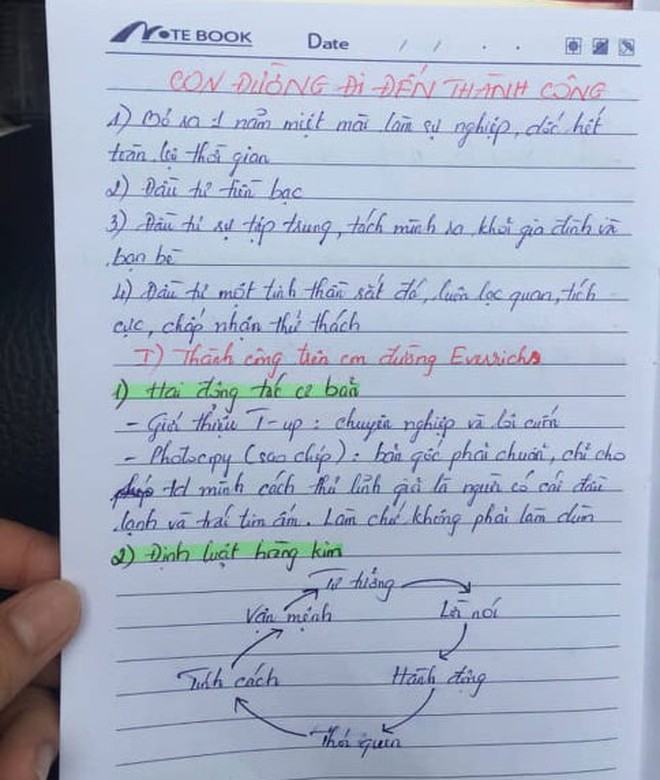 NOTE BOOK Date / / . .
CON ĐƯỜNG ĐI ĐẾN THÀNH CÔNG
1) Bỏ ra 1 năm miệt mài làm sự nghiệp, dốc hết
toàn bộ thời gian
2) Đầu tư tiền bạc
3) Đầu tư sự tập trung, tách mình ra khỏi gia đình và
bạn bè
4) Đầu tư một tinh thần sắt đá, luôn lạc quan, tích
cực, chấp nhận thử thách
I) Thành công trên con đường Everrichs
1) Hai động tác cơ bản
- Giới thiệu T-up : chuyên nghiệp và lôi cuốn
- Photocopy (sao chép) : bản gốc phải chuẩn, chỉ cho
mình cách thủ lĩnh giả là người có cái đầu
lạnh và trái tim ấm. Làm chứ không phải làm
2) Định luật hoàng kim
Tư tưởng
Vận mệnh Lời nói
Tính cách Hành động
Thói quen